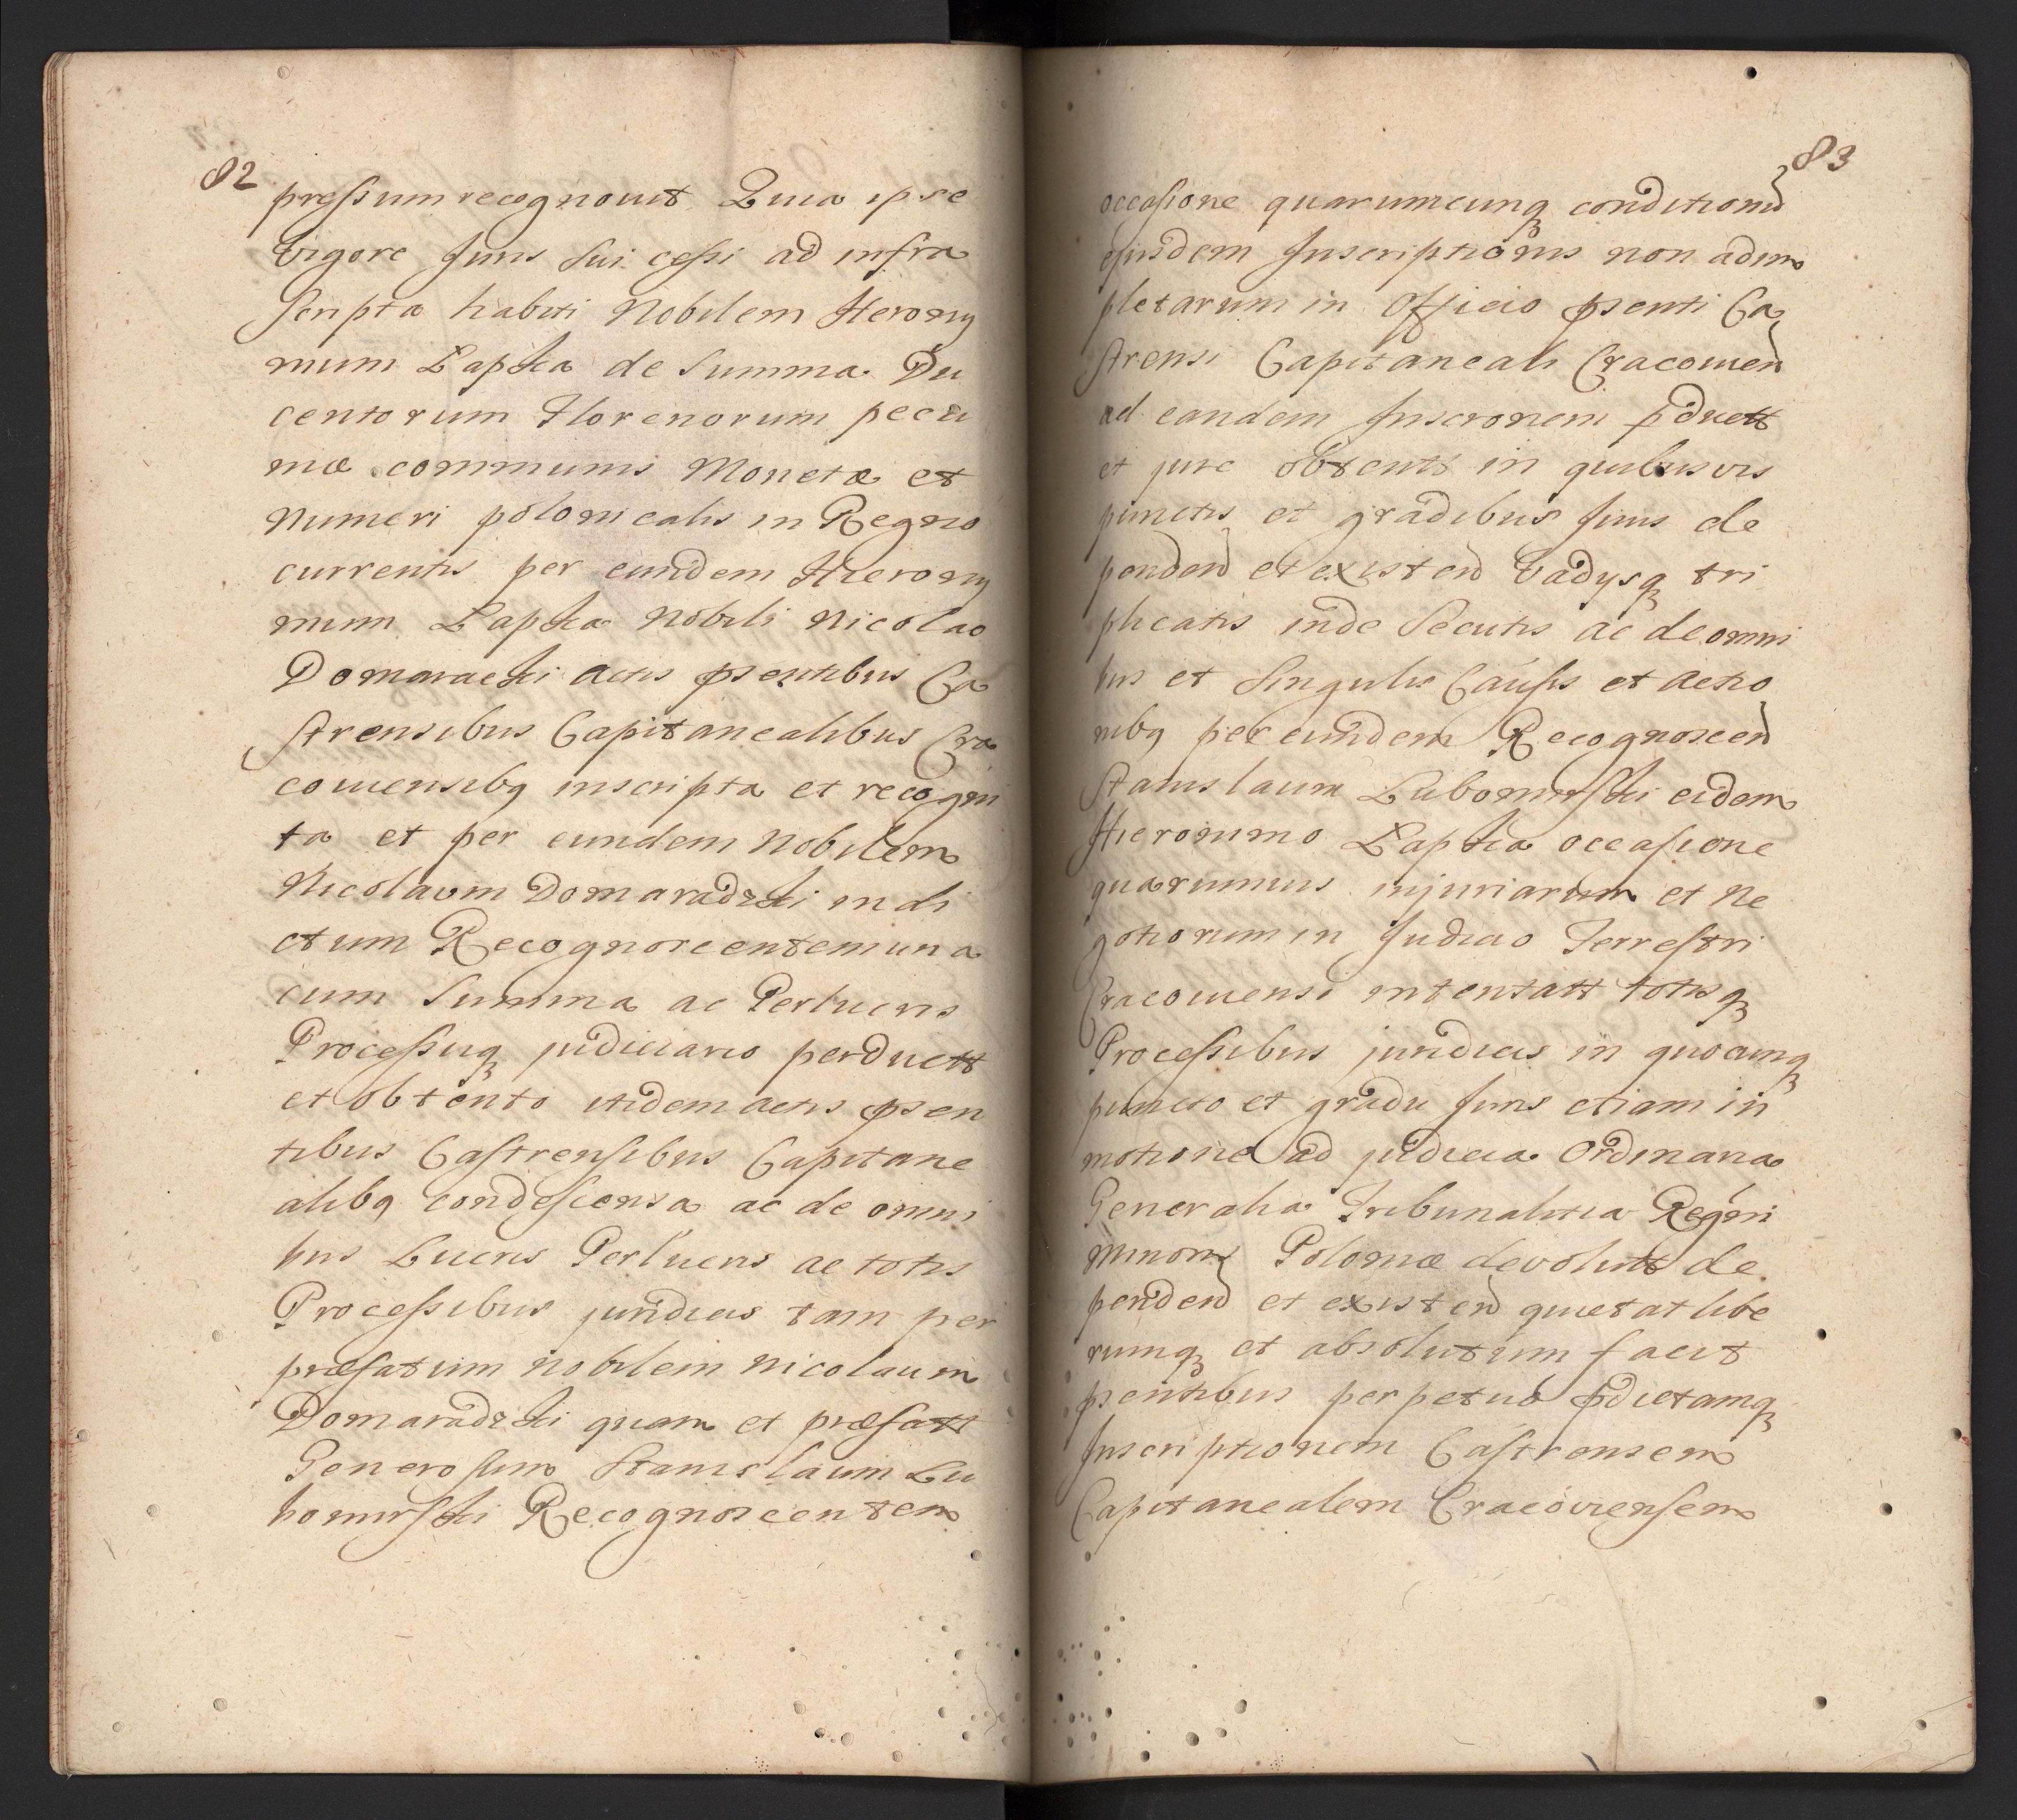 82
pressum recognovit Quia ipse
Vigore Juris sui cessi ad infra
scripta habiti Nobilem Herony
mum Lapka de Summa Du
centorum Florenorum pecu
niæ communis Monetæ et
Numeri polonicalis in Regno
currentis per eundem Hierony
mum Lapka Nobili Nicolao
Domaracki actis psentibus Ca
strensibus Capitanealibus Cra
coviensibq inscripta et recogni
ta et per eundem Nobilem
Nicolaum Domaradzki in di
ctum Recognoscentem una
cum Summa ac Perlucris
Processuq judiciario perductt
et obtento itidem actis psen
tibus Castrensibus Capitane
alibq condescensa ac de omni
bus Lucris Perlucris ac totis
Processibus juridicis tam per
præfatum Nobilem Nicolaum
Domaradzki quam et præfatt
Generosum Stanislaum Lu
bomirski Recognoscentem
83
occasione quarumcunq conditionu
ejusdem Inscriptionis non adim
pletarum in Officio psenti Ca
strensi Capitaneali Cracovien
ad eandem Inscronem pductt
et jure obtentt in quibusvis
punctis et gradibus Juris de
penden et existen Vadysq tri
plicatis inde Secutis ac de omni
bus et Singulis Causis et Actio
nibq per eundem Recognoscen
Stanislaum Lubomirski eidem
Hieronimo Lapka occasione
quarumvis injuriarum et Ne
gotiorum in Judicio Terrestri
Cracoviensi intentatt totisq
Processibus juridicis in quocunq
puncto et gradu Juris etiam in
motione ad judicia Ordinaria
Generalia Tribunalitia Regni
Minoris Poloniæ devolutt de
penden et existen quietat libe
rumq et absolutum facit
psentibus perpetuo pdictamq
Inscriptionem Castrensem
Capitanealem Cracoviensem